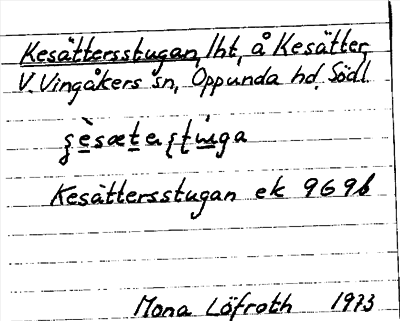 Kesättersstugan, lht, å Kesätter,
V. Vingåkers sn, Oppunda hd, Södl.
Kesättersstugan ek 969b
Mona Löfroth 1973